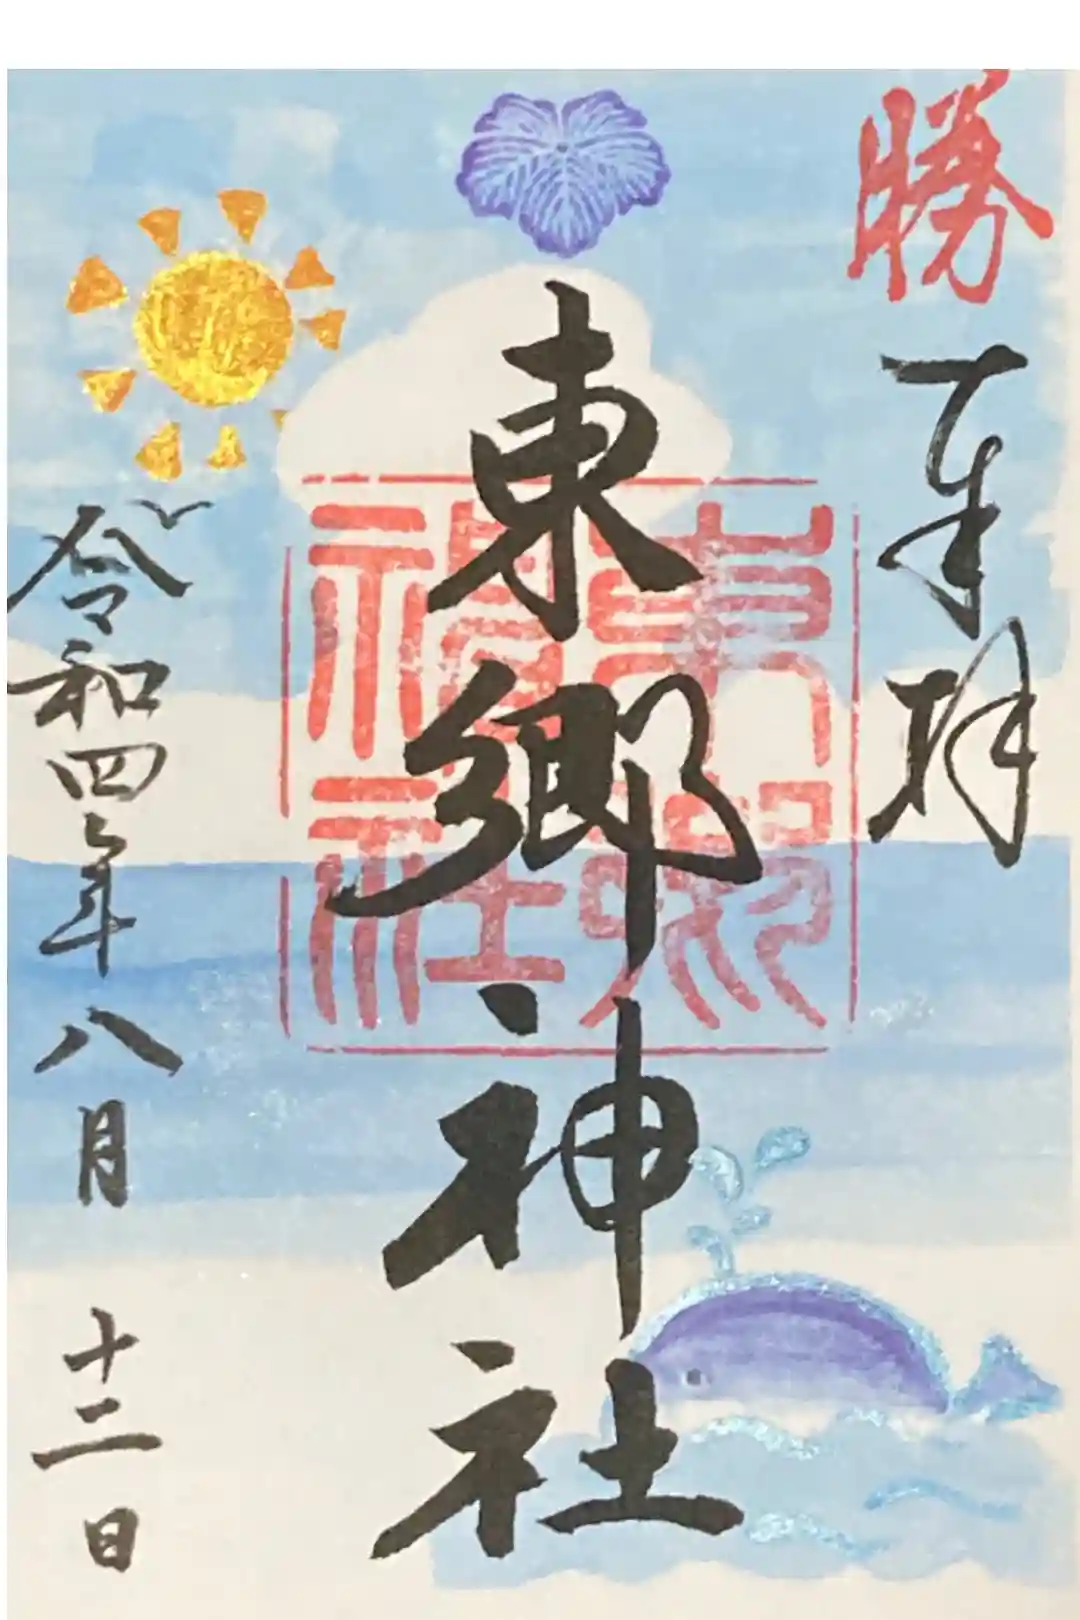 勝
奉拝
東郷神社
東郷神社
令和四年八月十二日